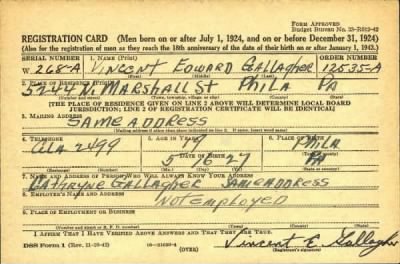 FORM APPROVED
Budget Bureau No. 33-R012-42
REGISTRATION CARD (Men born on or after July 1, 1924, and on or before December 31, 1924)
(Also for the registration of men as they reach the 18th anniversary of the date of their birth on or after January 1, 1943.)
SERIAL NUMBER 1. NAME (Print) ORDER NUMBER
W 268-A VINCENT EDWARD GALLAGHER 12535-A
5244 N. MARSHALL ST PHILA PA
[THE PLACE OF RESIDENCE GIVEN ON LINE 2 ABOVE WILL DETERMINE LOCAL BOARD
JURISDICTION; LINE 2 OF REGISTRATION CERTIFICATE WILL BE IDENTICAL]
3. MAILING ADDRESS
SAME ADDRESS
[Mailing address if other than place indicated on line 2. If same, insert word same]
4. TELEPHONE 5. AGE IN YEARS 6. PLACE OF BIRTH
2499 19 PHILA
DATE OF BIRTH
5 16 27 PA
7. NAME AND ADDRESS OF PERSON WHO WILL ALWAYS KNOW YOUR ADDRESS
CATHRYNE GALLAGHER SAME ADDRESS
8. EMPLOYER'S NAME AND ADDRESS
NOT EMPLOYED
9. PLACE OF EMPLOYMENT OR BUSINESS
(Number and street or R. F. D. number) (Town) (County) (State)
I AFFIRM THAT I HAVE VERIFIED ABOVE ANSWERS AND THAT THEY ARE TRUE.
DSS Form 1 (Rev. 11-16-42) (OVER) Vincent E. Gallagher
(Registrant's signature)